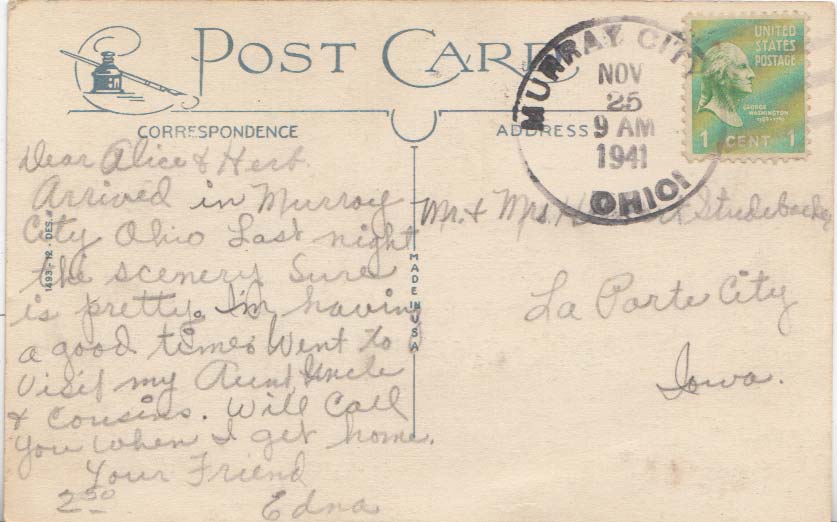 POST CARD
CORRESPONDENCE
ADDRESS
MURRAY CITY
NOV
25
9 AM
1941
OHIO
UNITED
STATES
POSTAGE
GEORGE
WASHINGTON
1 CENT 1
Dear Alice & Herb.
Arrived in Murray
City Ohio Last night
the scenery Sure
is pretty. Im having
a good time. Went to
Visit my Aunt Uncle
& Cousins. Will Call
you when I get home.
Your Friend
Edna
2.50
1493-12-DES.
MADE IN USA
Mr. & Mrs. Studebacker
La Porte City
Iowa.